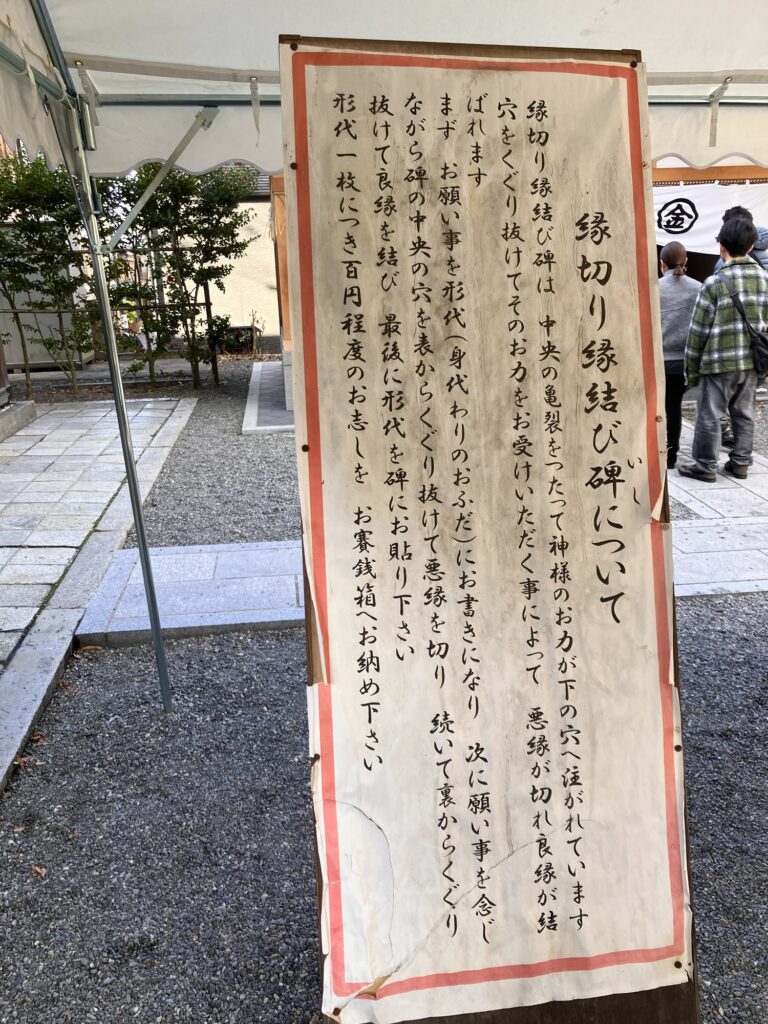 縁切り縁結び碑について
いし
縁切り縁結び碑は 中央の亀裂をつたって神様のお力が下の穴へ注がれています
穴をくぐり抜けてそのお力をお受けいただく事によって 悪縁が切れ良縁が結
ばれます
まず お願い事を形代(身代わりのおふだ)にお書きになり 次に願い事を念じ
ながら碑の中央の穴を表からくぐり抜けて悪縁を切り 続いて裏からくぐり
抜けて良縁を結び 最後に形代を碑にお貼り下さい
形代一枚につき百円程度のお志しを お賽銭箱へお納め下さい
金